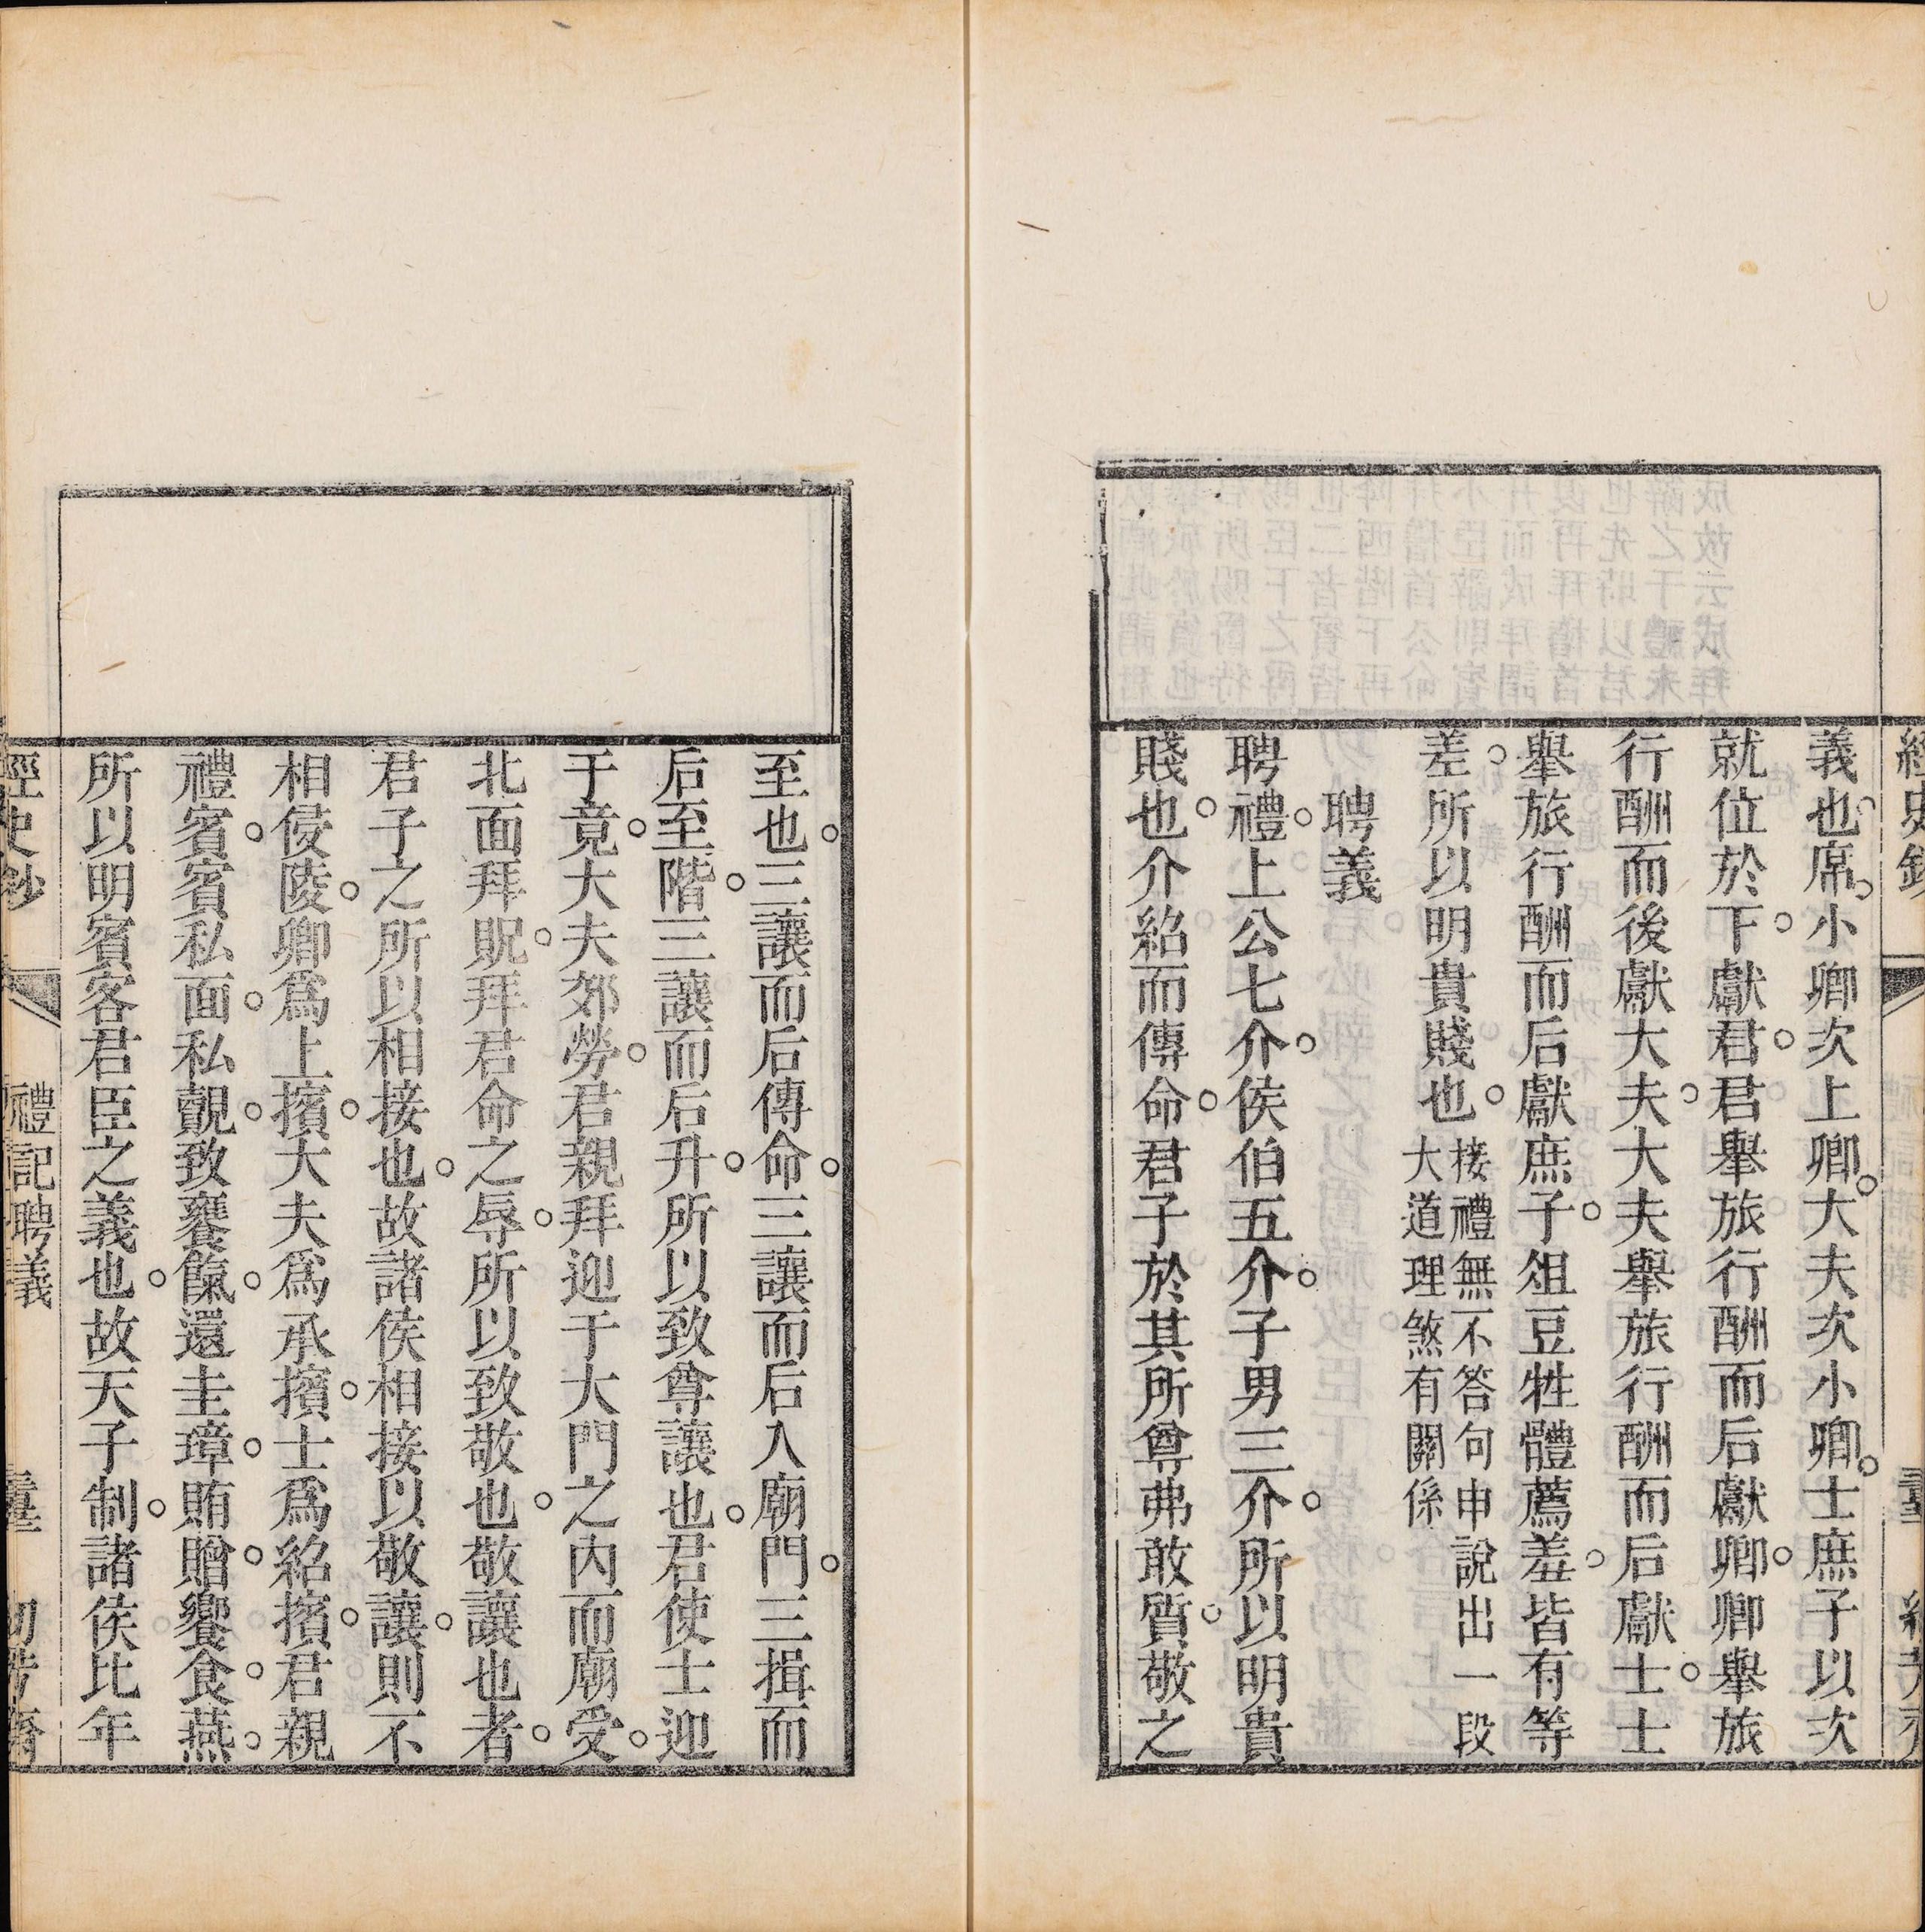 義也。席。小卿次上卿。大夫次小卿。士庶子以次
就位於下。獻君。君舉旅行酬而后獻卿。卿舉旅
行酬而後獻大夫。大夫舉旅行酬而后獻士。士
舉旅行酬而后獻庶子。俎豆牲體薦羞。皆有等
差。所以明貴賤也。接禮無不答句申說出一段
大道理煞有關係
聘義
聘禮。上公七介。侯伯五介。子男三介。所以明貴
賤也。介紹而傳命。君子於其所尊弗敢質。敬之
至也。三讓而后傳命。三讓而后入廟門。三揖而
后至階。三讓而后升。所以致尊讓也。君使士迎
于竟。大夫郊勞。君親拜迎于大門之內而廟受。
北面拜貺。拜君命之辱。所以致敬也。敬讓也者。
君子之所以相接也。故諸侯相接以敬讓。則不
相侵陵。卿爲上擯。大夫爲承擯。士爲紹擯。君親
禮賓。賓私面。私覿。致饔餼。還圭璋。賄贈。饗食。燕。
所以明賓客君臣之義也。故天子制。諸侯比年
經史鈔
禮記聘義